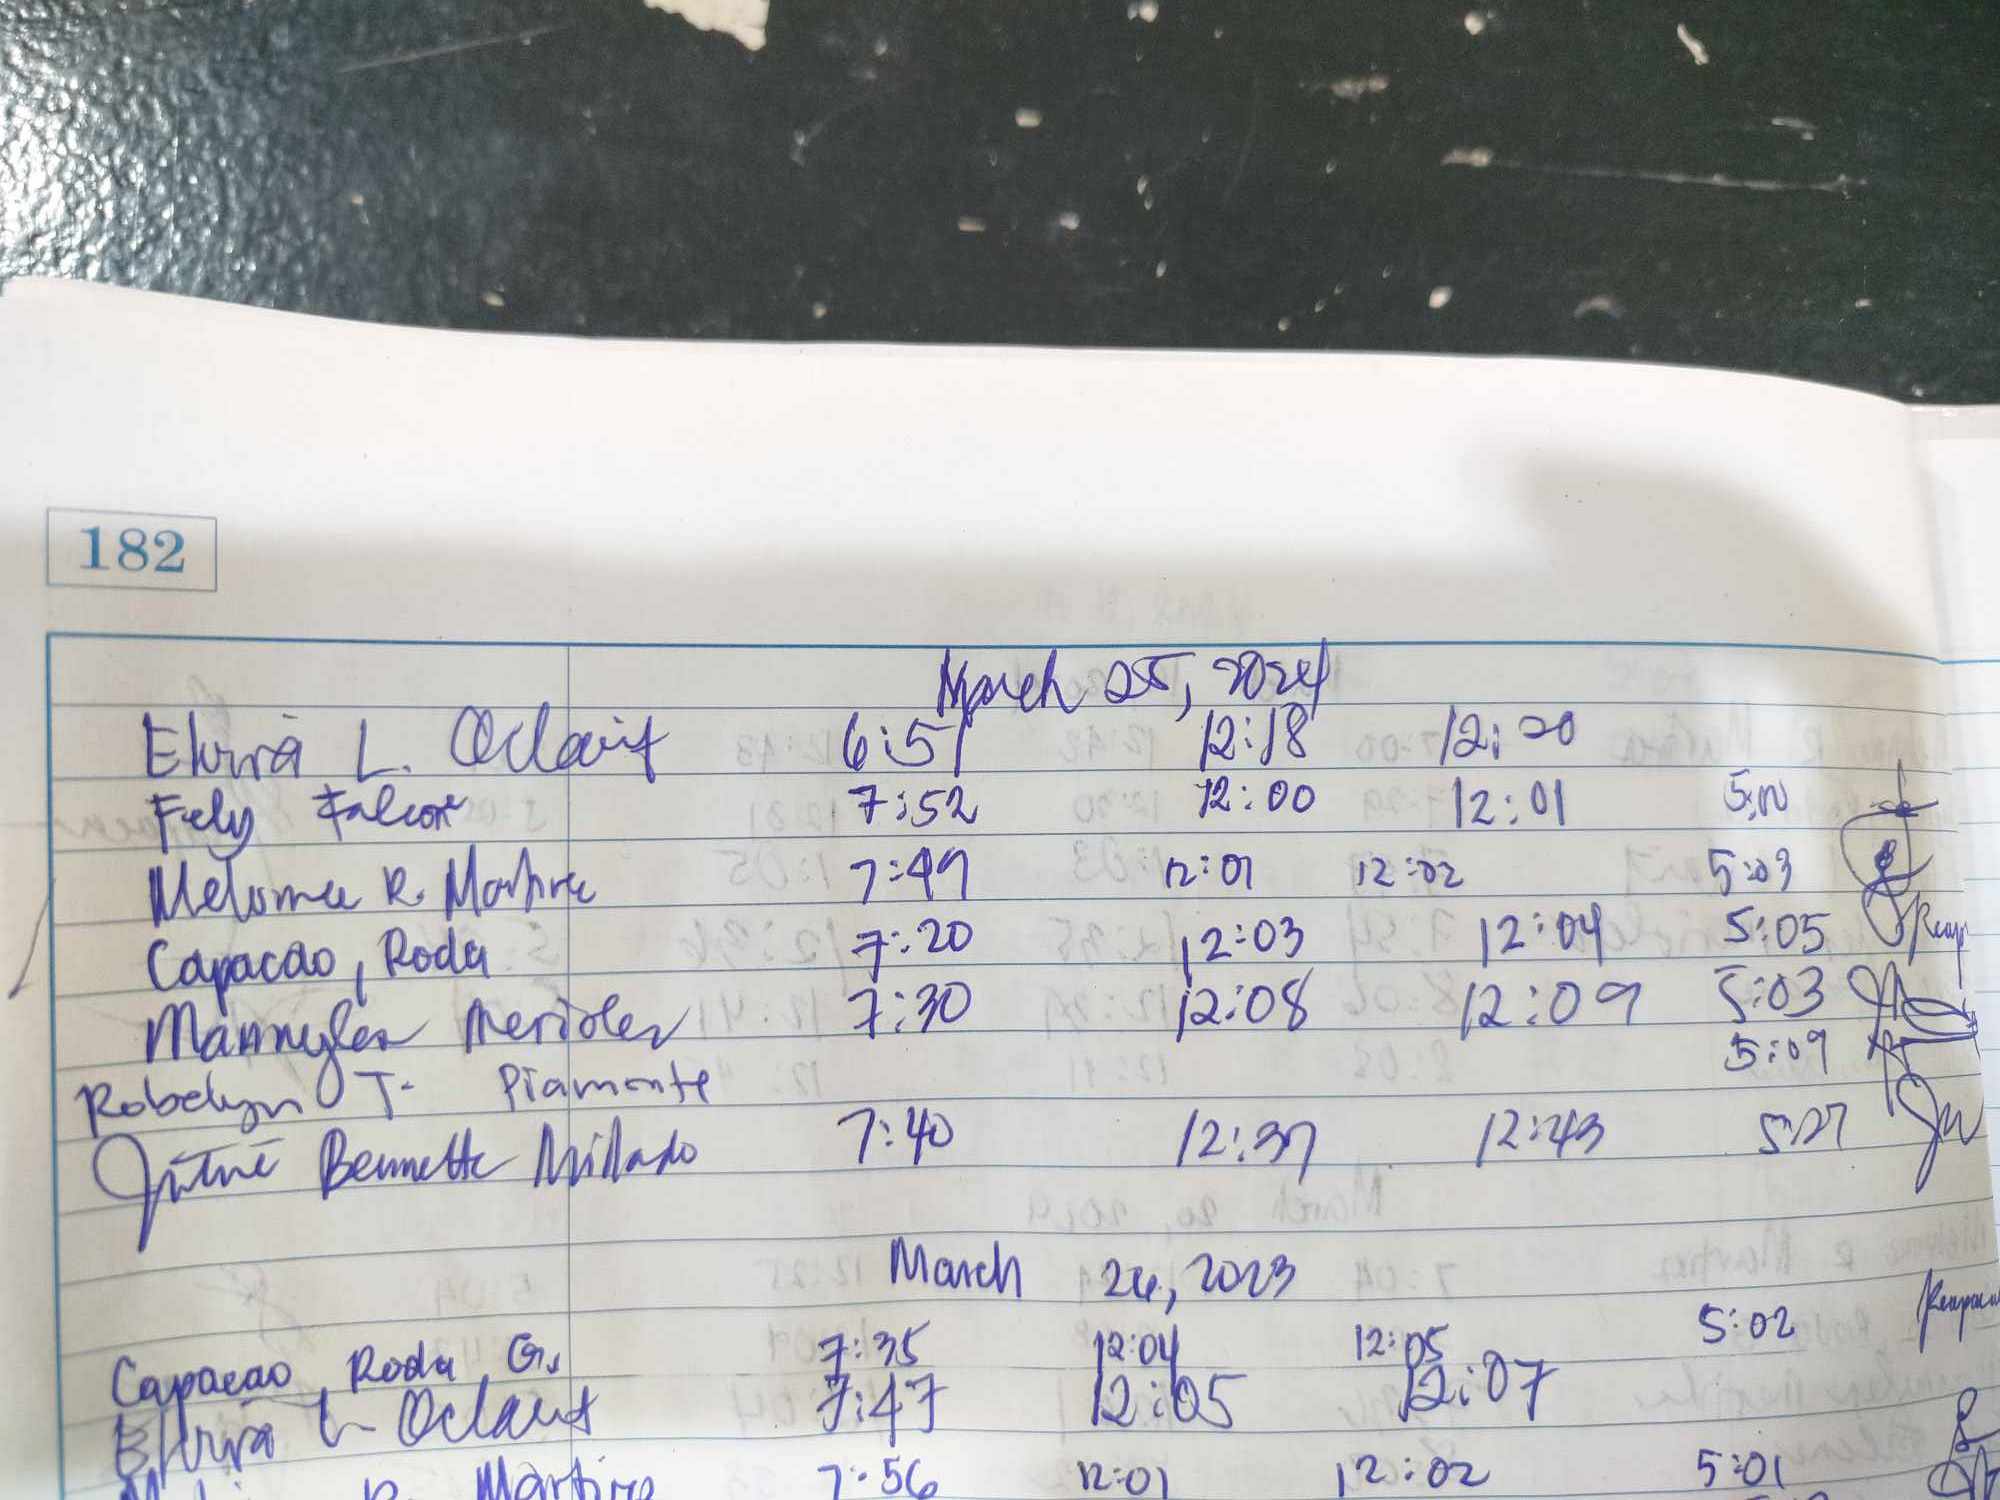 182
March 25, 2024
Elvira L. Oclarit 6:51 12:18 12:20
Fely Falcon 7:52 12:00 12:01 5:00
R. Martire 7:49 12:01 12:02 5:03
Capacao, Roda 7:20 12:03 12:04 5:05
Merioles 7:30 12:08 12:09 5:03
Robelyn T. Piamonte 5:09
Bennette Millado 7:40 12:37 12:43 5:27
March 26, 2023
Capacao Roda G. 7:35 12:04 12:05 5:02
Elvira L. Oclarit 7:47 12:05 12:07
R. Martire 7:56 12:01 12:02 5:01